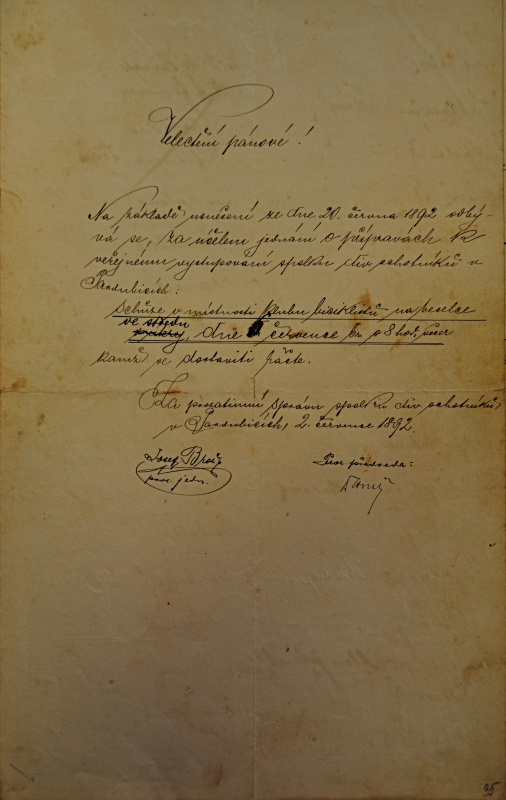 Velectění pánové!
Na základě usnešení ze dne 20. června 1892 odbý-
vá se, za účelem jednání o přípravách k
veřejnému vystupování spolku div. ochotníků v
Pardubicích:
schůze v místnosti klubu bicyklistů
ve středu
dne července t.r. o 8 hod. večer
kamž se dostaviti račte.
Za prozatimní správu spolku div. ochotníků
v Pardubicích, 2. července 1892.
Josef Brož
proz. jedn.
Proz. předseda:
95